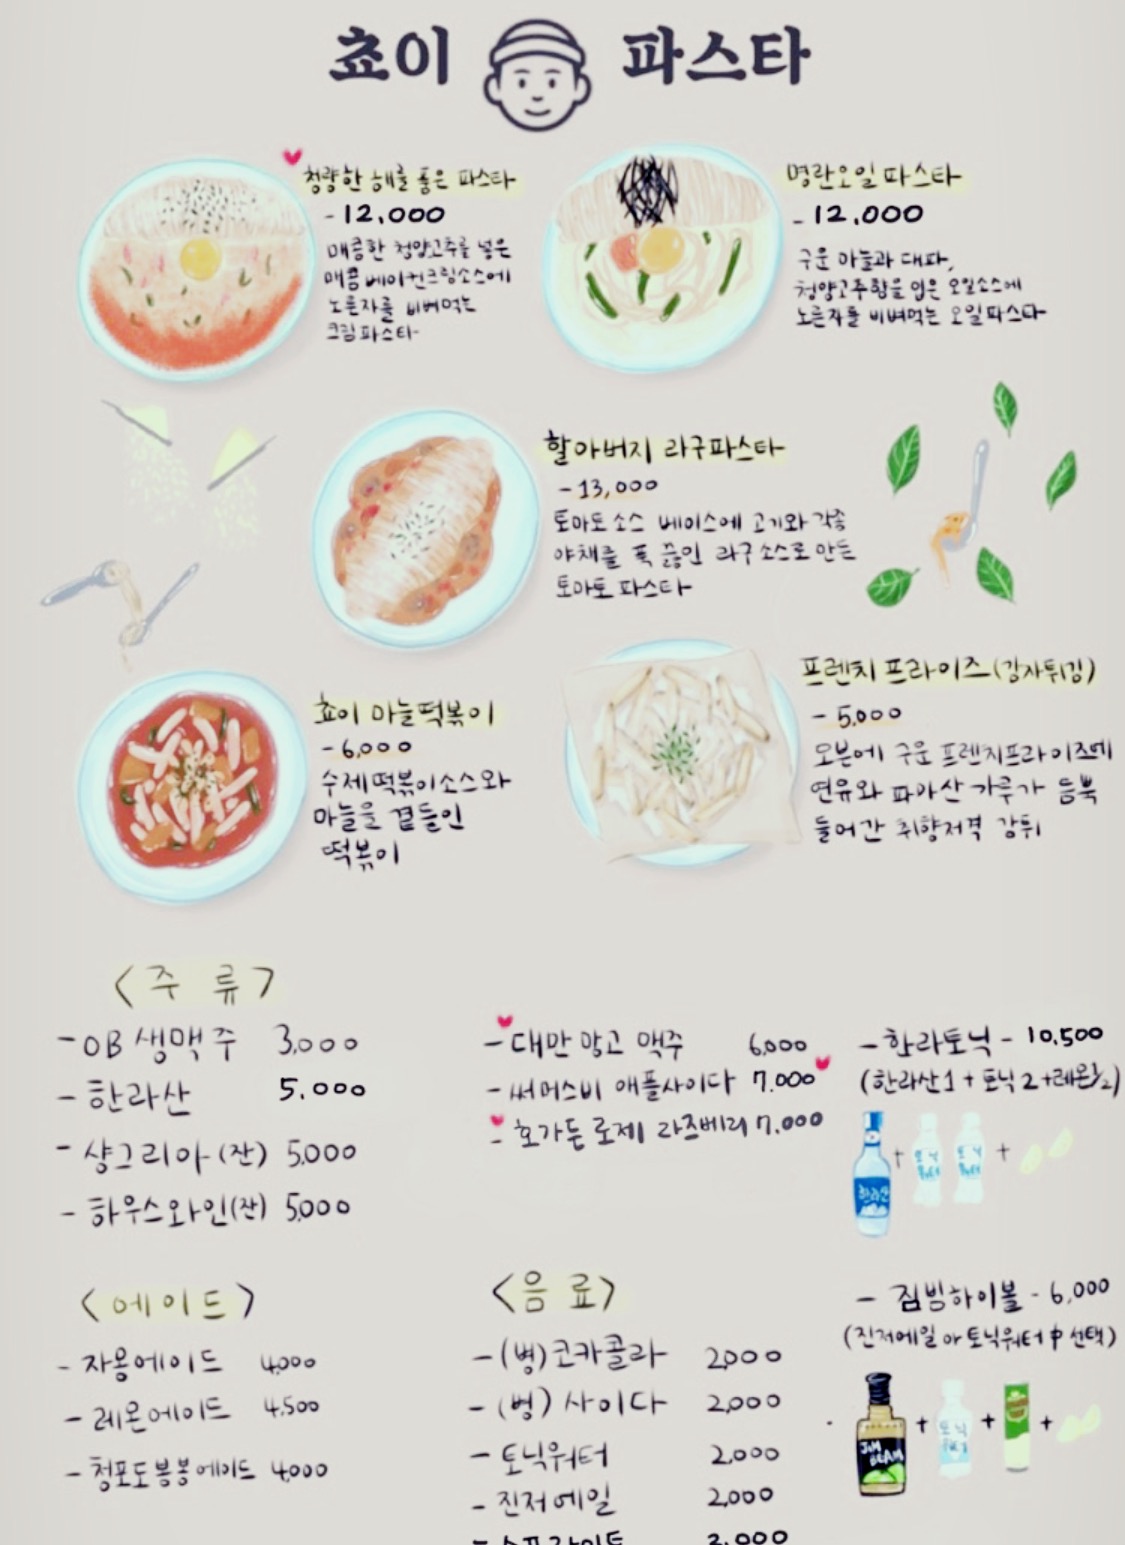 쵸이 파스타
청량한 해를 품은 파스타
- 12,000
매콤한 청양고추를 넣은
매콤 베이컨크림소스에
노른자를 비벼먹는
크림파스타
명란오일파스타
- 12,000
구운 마늘과 대파,
청양고추향을 입은 오일소스에
노른자를 비벼먹는 오일파스타
할아버지 라구파스타
- 13,000
토마토소스 베이스에 고기와 각종
야채를 푹 끓인 라구소스로 만든
토마토 파스타
쵸이 마늘떡볶이
- 6,000
수제떡볶이소스와
마늘을 곁들인
떡볶이
프렌치 프라이즈(감자튀김)
- 5,000
오븐에 구운 프렌치프라이즈에
연유와 파마산가루가 듬뿍
들어간 취향저격 감튀
<주 류>
- OB 생맥주 3,000
- 한라산 5,000
- 샹그리아(잔) 5,000
- 하우스와인(잔) 5,000
- 대만 망고 맥주 6,000
- 써머스비 애플사이다 7,000
- 호가든 로제 라즈베리 7,000
- 한라토닉 - 10,500
(한라산1 + 토닉2 + 레몬1/2)
한라산 + 토닉워터 토닉워터 +
<에이드>
- 자몽에이드 4,000
- 레몬에이드 4,500
- 청포도봉봉에이드 4,000
<음 료>
- (병)코카콜라 2,000
- (병)사이다 2,000
- 토닉워터 2,000
- 진저에일 2,000
- 스프라이트 2,000
- 짐빔하이볼 - 6,000
(진저에일 or 토닉워터 中 선택)
JIM BEAM + 토닉워터 + +